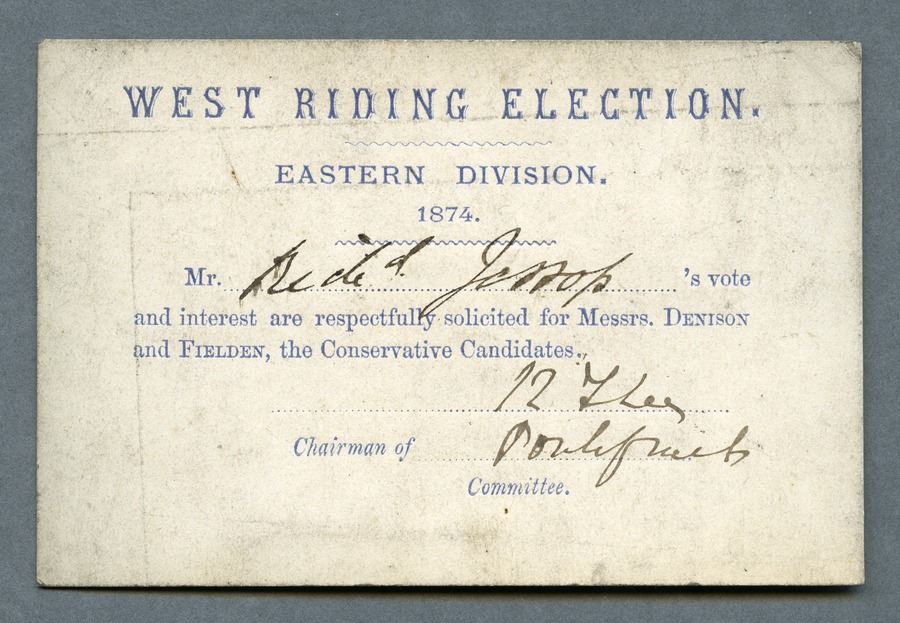 WEST RIDING ELECTION.
EASTERN DIVISION.
1874.
Mr. Richd Jessop 's vote
and interest are respectfully solicited for Messrs. DENISON
and FIELDEN, the Conservative Candidates.
12
Chairman of Pontefract
Committee.